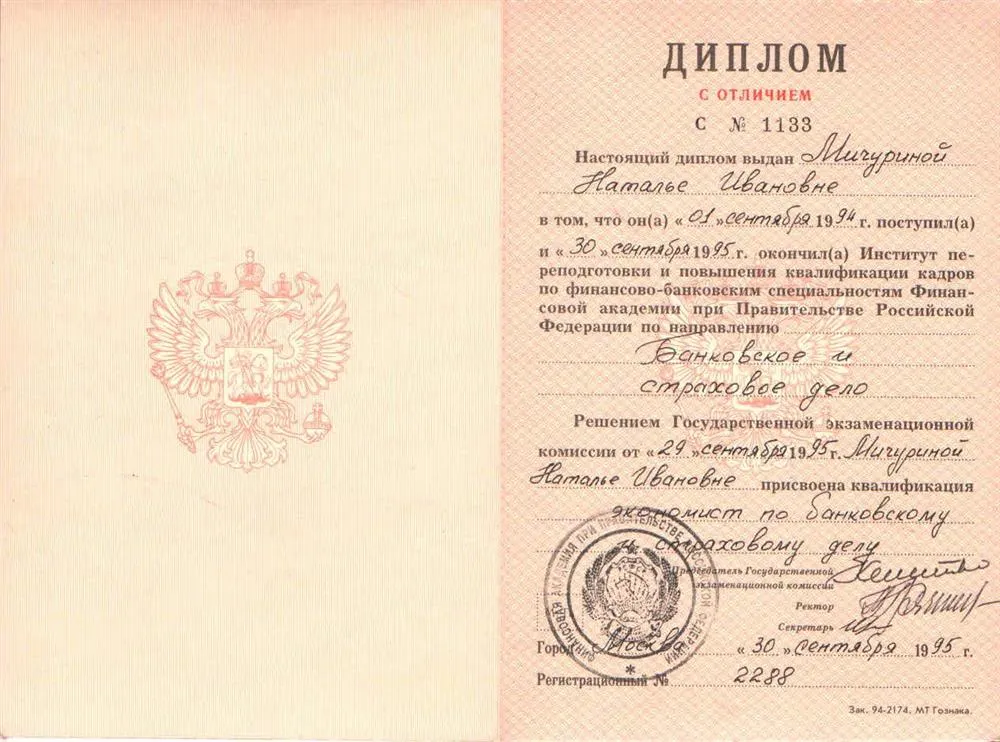 ДИПЛОМ
С ОТЛИЧИЕМ
С № 1133
Настоящий диплом выдан Мичуриной
Наталье Ивановне
в том, что он(а) «01» сентября 1994 г. поступил(а)
и «30» сентября 1995 г. окончил(а) Институт пе-
реподготовки и повышения квалификации кадров
по финансово-банковским специальностям Финан-
совой академии при Правительстве Российской
Федерации по направлению
Банковское и
страховое дело
Решением Государственной экзаменационной
комиссии от «29» сентября 1995 г. Мичуриной
Наталье Ивановне присвоена квалификация
экономист по банковскому
и страховому делу
Председатель Государственной
экзаменационной комиссии
Ректор
Секретарь
Город Москва «30» сентября 1995 г.
Регистрационный № 2288
ФИНАНСОВАЯ АКАДЕМИЯ ПРИ ПРАВИТЕЛЬСТВЕ РОССИЙСКОЙ ФЕДЕРАЦИИ
Зак. 94-2174. МТ Гознака.